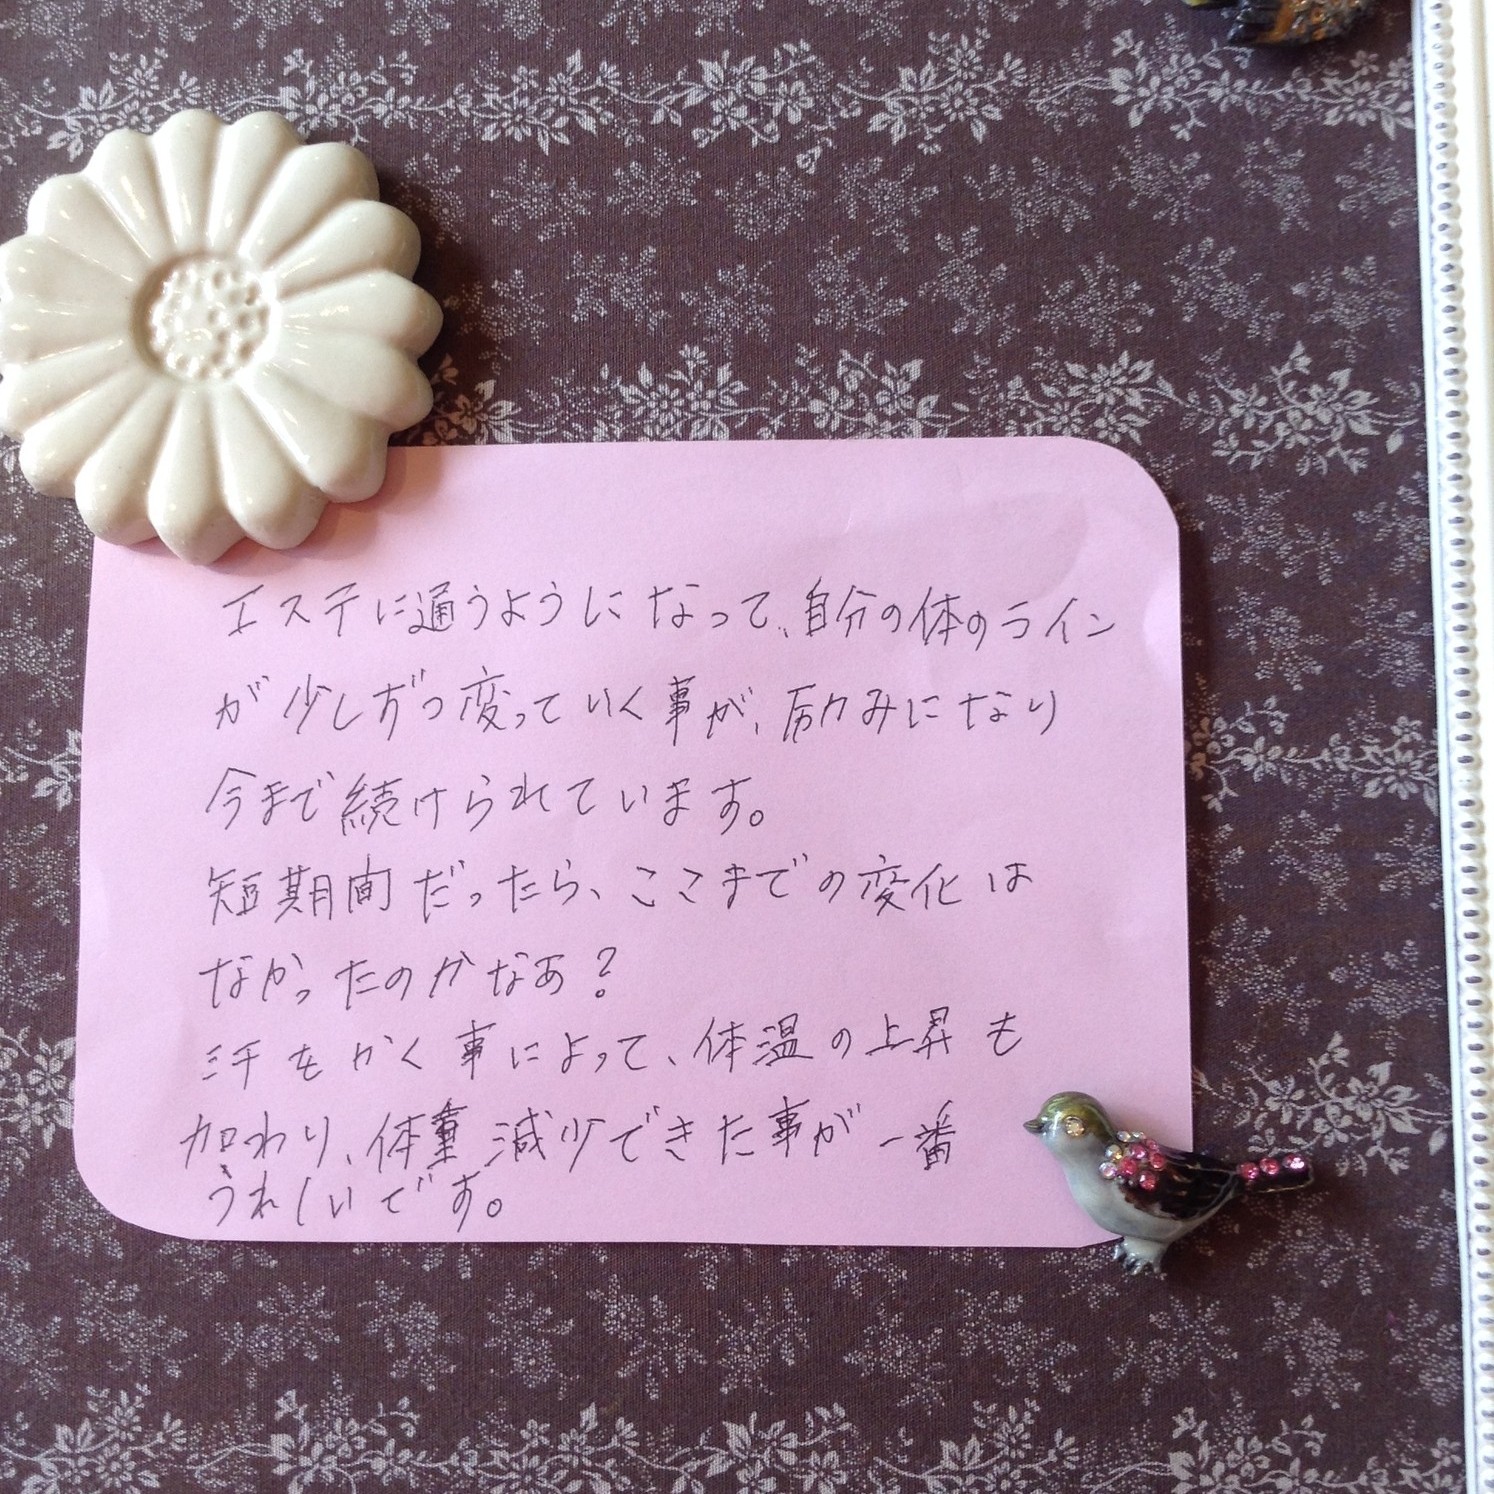 エステに通うようになって、自分の体のライン
が少しずつ変っていく事が、励みになり
今まで続けられています。
短期間だったら、ここまでの変化は
なかったのかなあ?
汗をかく事によって、体温の上昇も
加わり、体重減少できた事が一番
うれしいです。